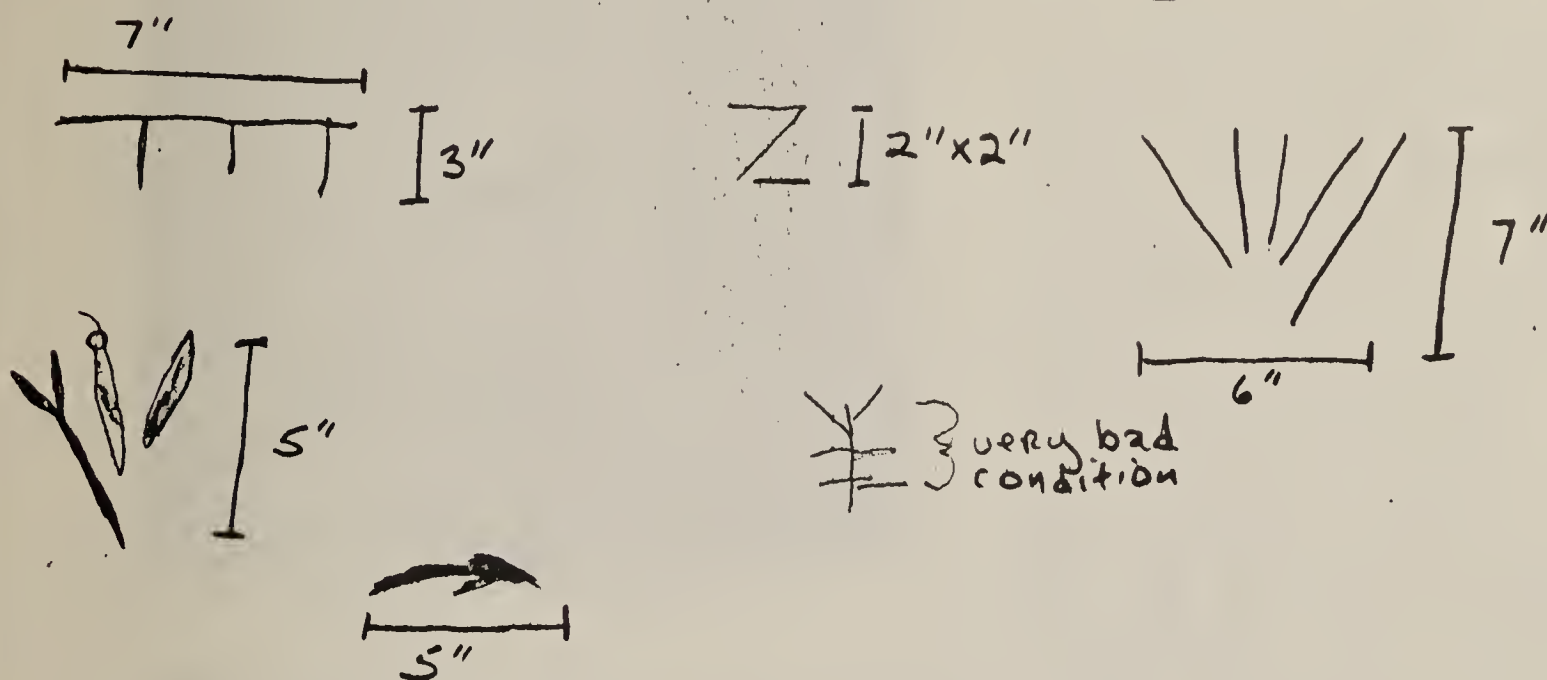 7"
3"
2"x2"
7"
6"
5"
very bad
condition
5"